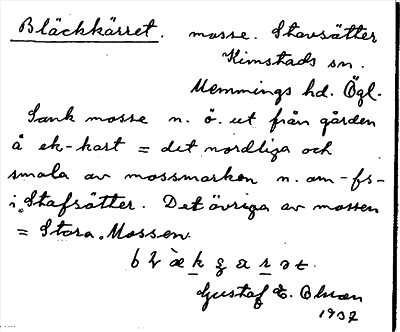 Bläckkärret. mosse. Stavsätter
Kimstads sn.
Memmings hd. Ögl.
Sank mosse n. ö. ut från gården
å ek-kart = det nordliga och
smala av mossmarken n. om -fs-
i Stafsätter. Det övriga av mossen
= Stora Mossen.
Gustaf E. Olsson